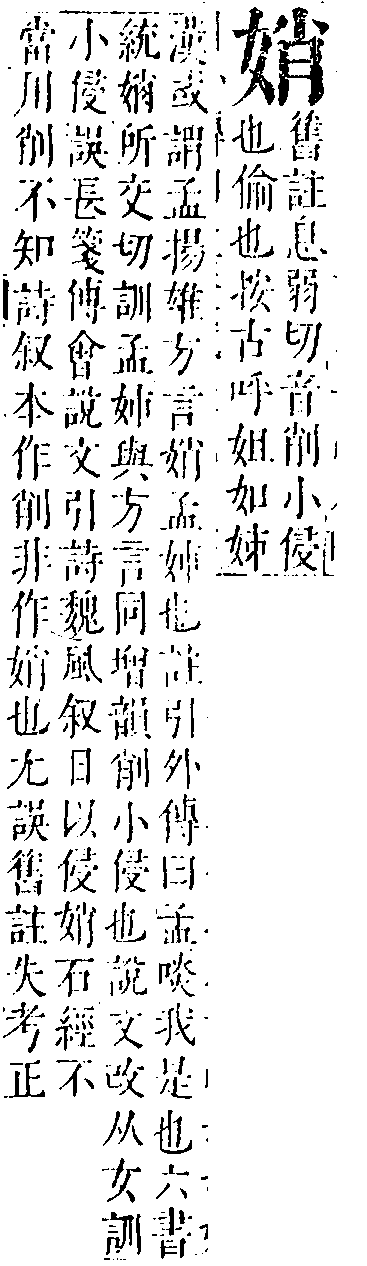 娋
舊註息弱切音削小侵
也偷也按古呼姐如姊
漢或謂孟揚雄方言娋孟姊也註引外傳曰孟啖我是也六書
統娋所交切訓孟姊與方言同增韻削小侵也說文改从女訓
小侵誤長箋傅會說文引詩魏風叙曰以侵娋石經不
當川削不知詩叙本作削非作娋也尤誤舊註失考正